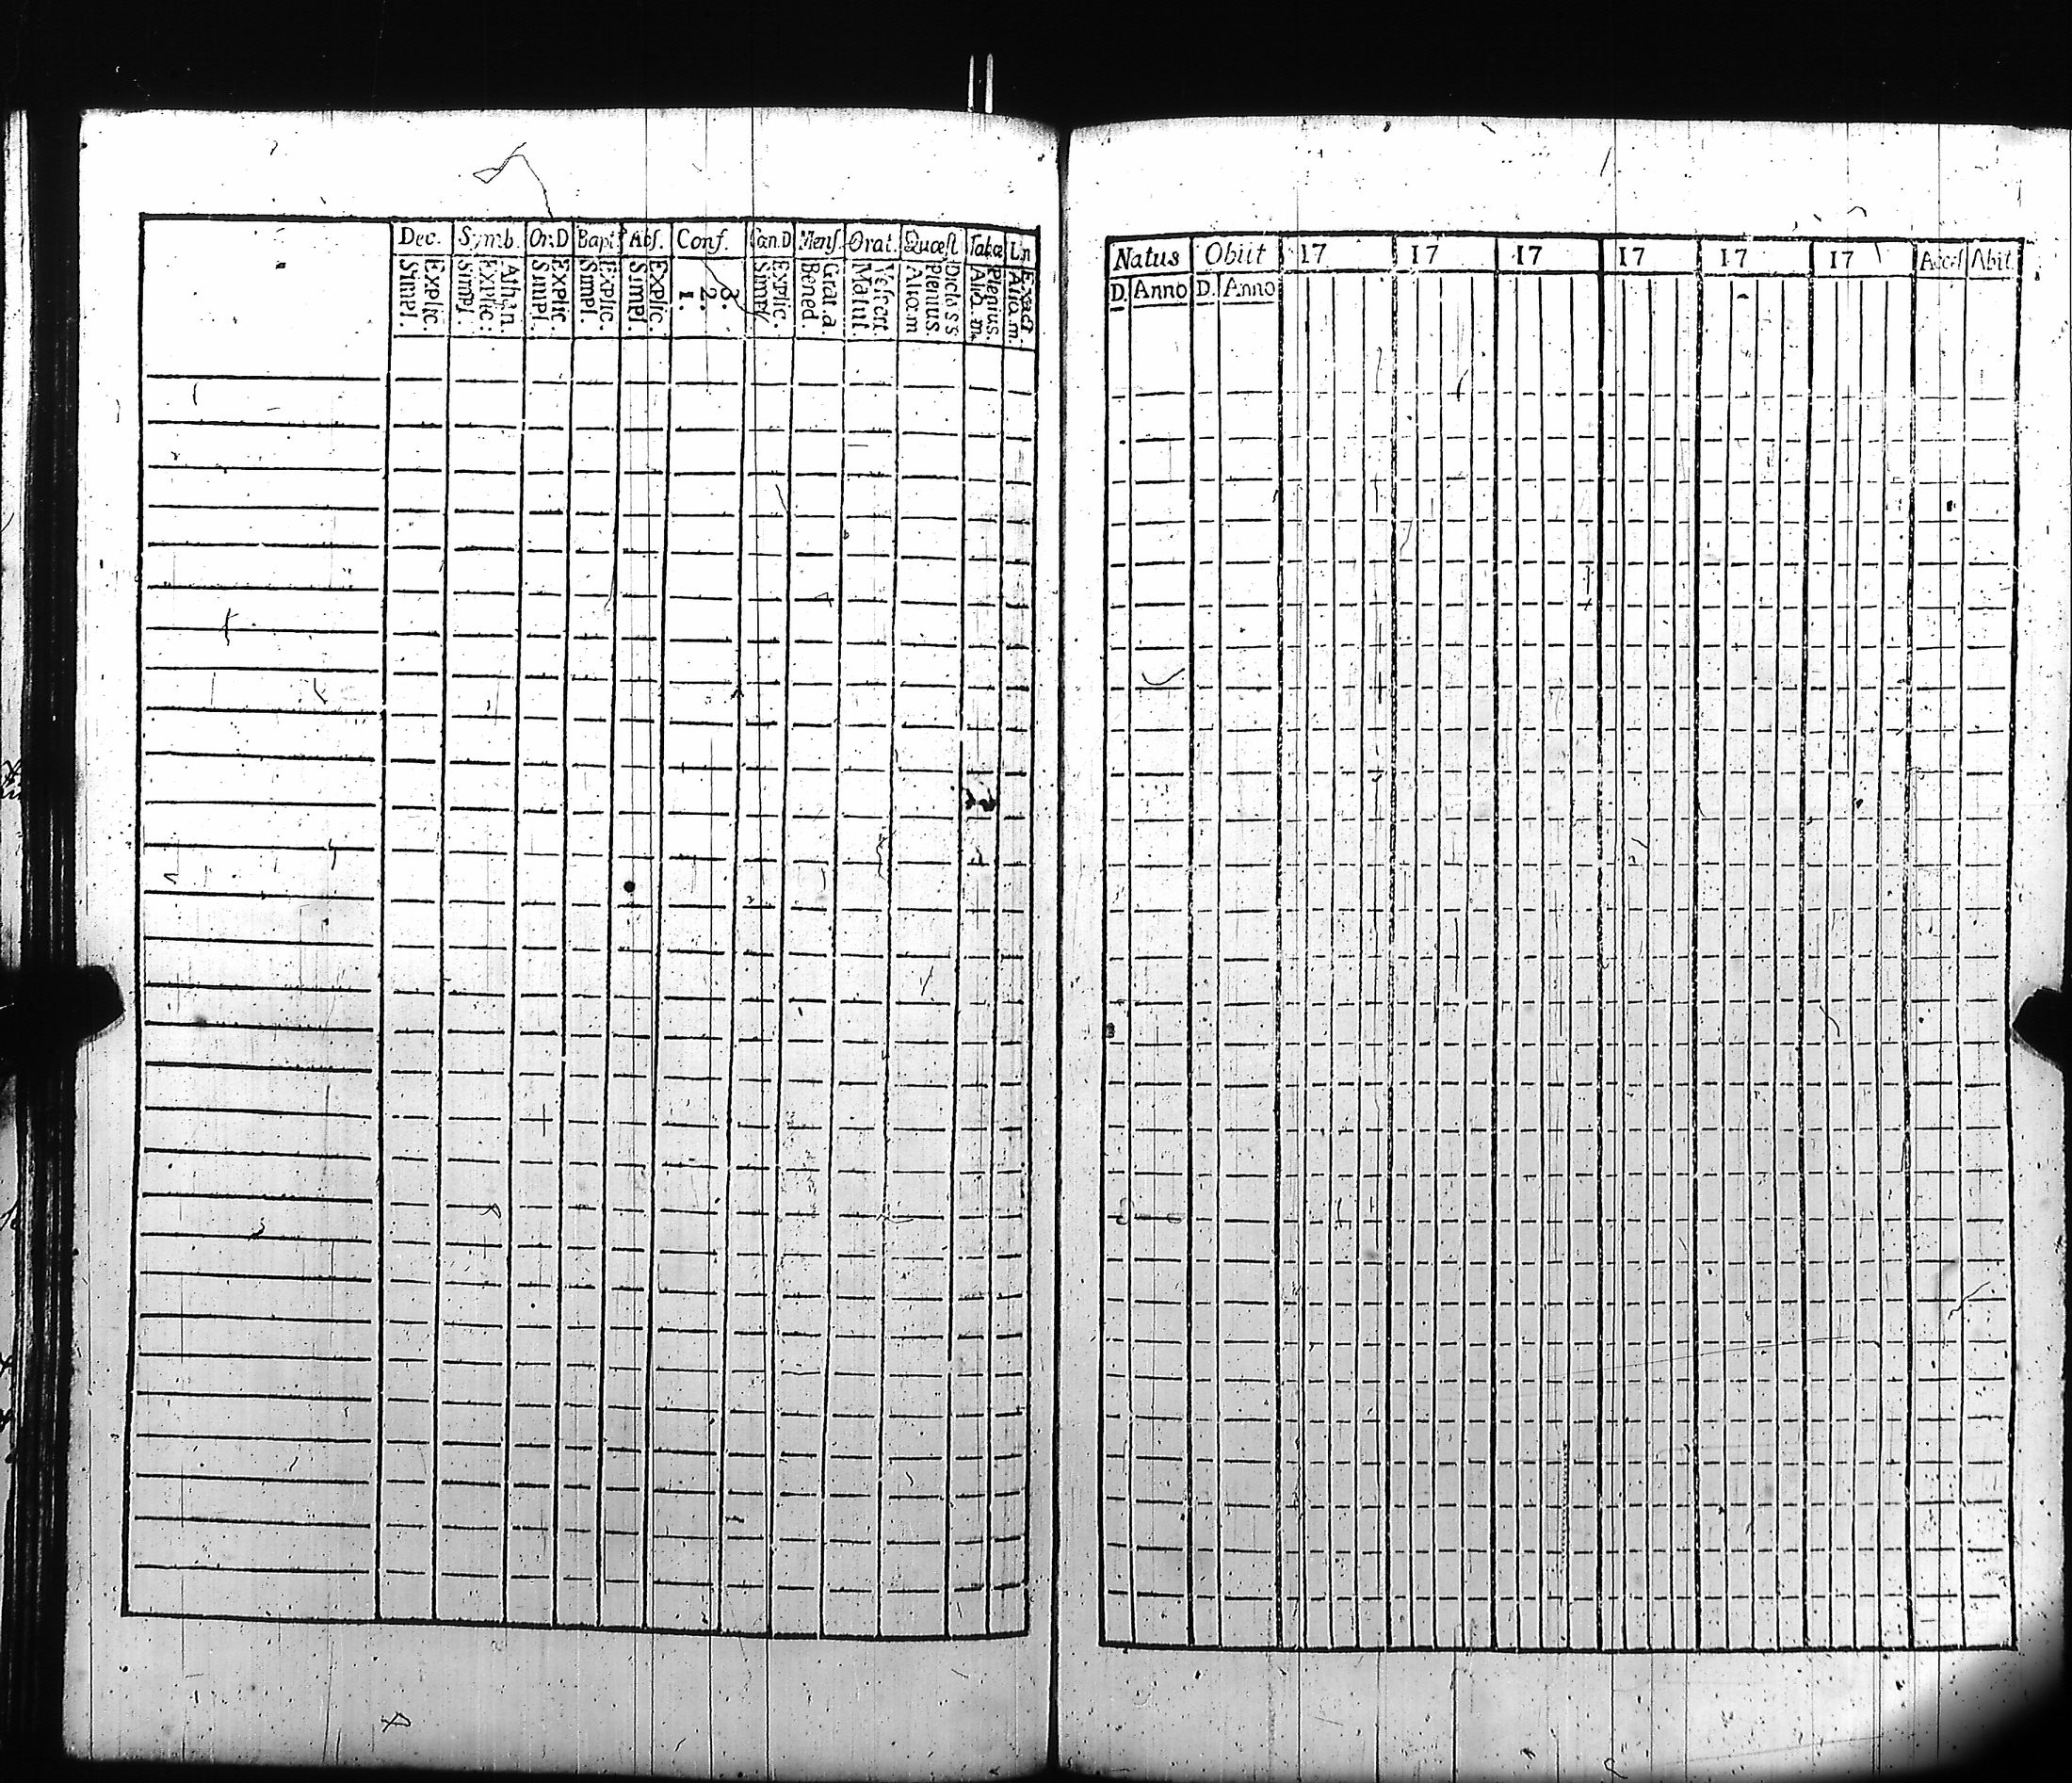 Dec. Symb. Or.D Bapt. Abs. Conf. Cœn.D Mens. Orat. Quæst Tabæ Ln
Simpl. Explic. Simpl. Explic: Athan. Simpl. Explic. Simpl. Explic. Simpl. Explic. 1. 2. 3. Simpl. Explic. Bened. Grat. a. Matut. Vesfert. Aliq.m Plenius. Dicta SS Aliq.m Plenius. Aliq.m. Exact
Natus Obiit 17 17 17 17 17 17 Acces Abit
D. Anno D. Anno